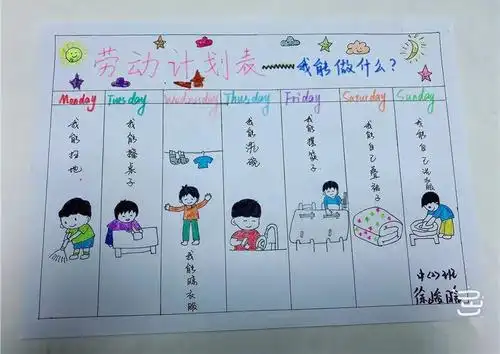 劳动计划表~~~我能做什么?
Monday Tuesday Wednesday Thusday Friday Saturday Sunday
我能扫地.
我能擦桌子
我能晒衣服
我能洗碗
我能摆筷子
我能自己叠被子
我能自己洗衣服
中(2)班
徐峻